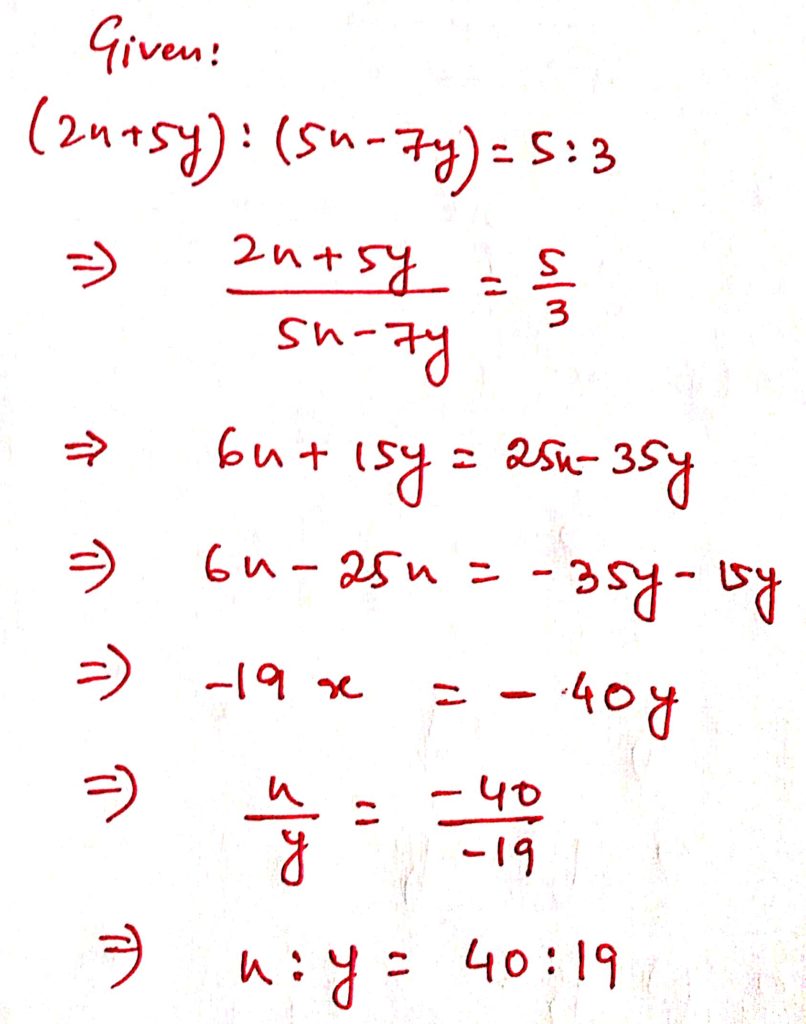 Given:
(2x+5y) : (5x-7y) = 5:3
⇒ (2x+5y)/(5x-7y) = 5/3
⇒ 6x + 15y = 25x - 35y
⇒ 6x - 25x = -35y - 15y
⇒ -19x = -40y
⇒ x/y = -40/-19
⇒ x:y = 40:19